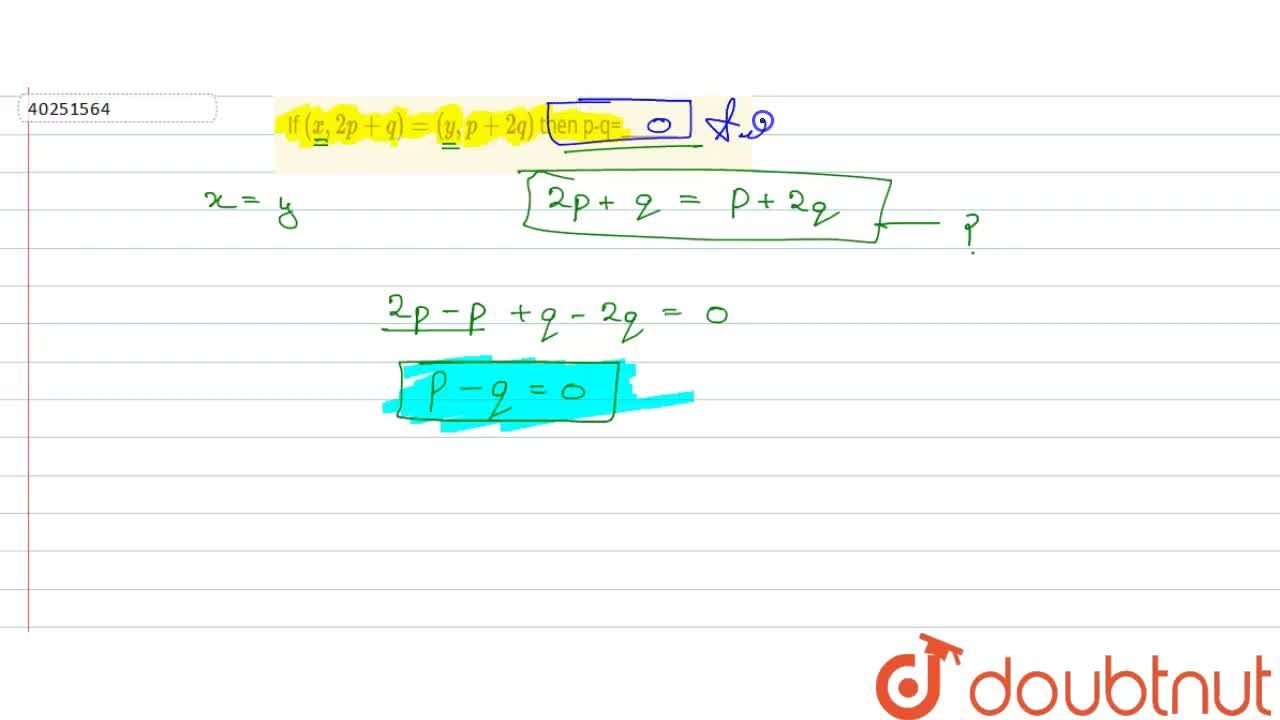 40251564
If (x, 2p + q) = (y, p + 2q) then p-q=_ 0
x = y
2p + q = p + 2q
?
2p - p + q - 2q = 0
p - q = 0
doubtnut